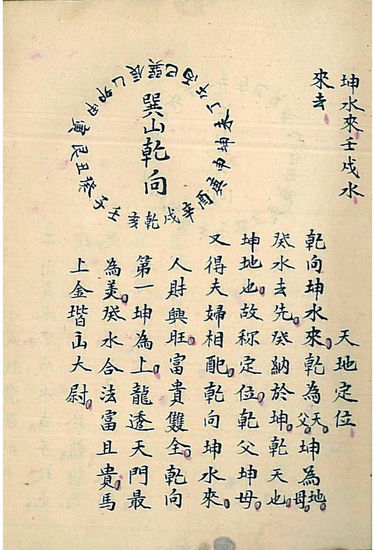 坤水來壬戌水
來去
巽山乾向
巽辰乙卯甲寅艮丑癸子壬亥乾戌辛酉庚申坤未丁午丙巳
天地定位
乾向坤水來。乾為天父。坤為地母。
癸水去先。癸納於坤。乾天也。
坤地也。故称定位。乾父坤母。
又得夫婦相配。乾向坤水來。
人財興旺。富貴雙全。乾向
第一坤為上。龍透天門最
為美。癸水合法富且貴。馬
上金堦山大尉。